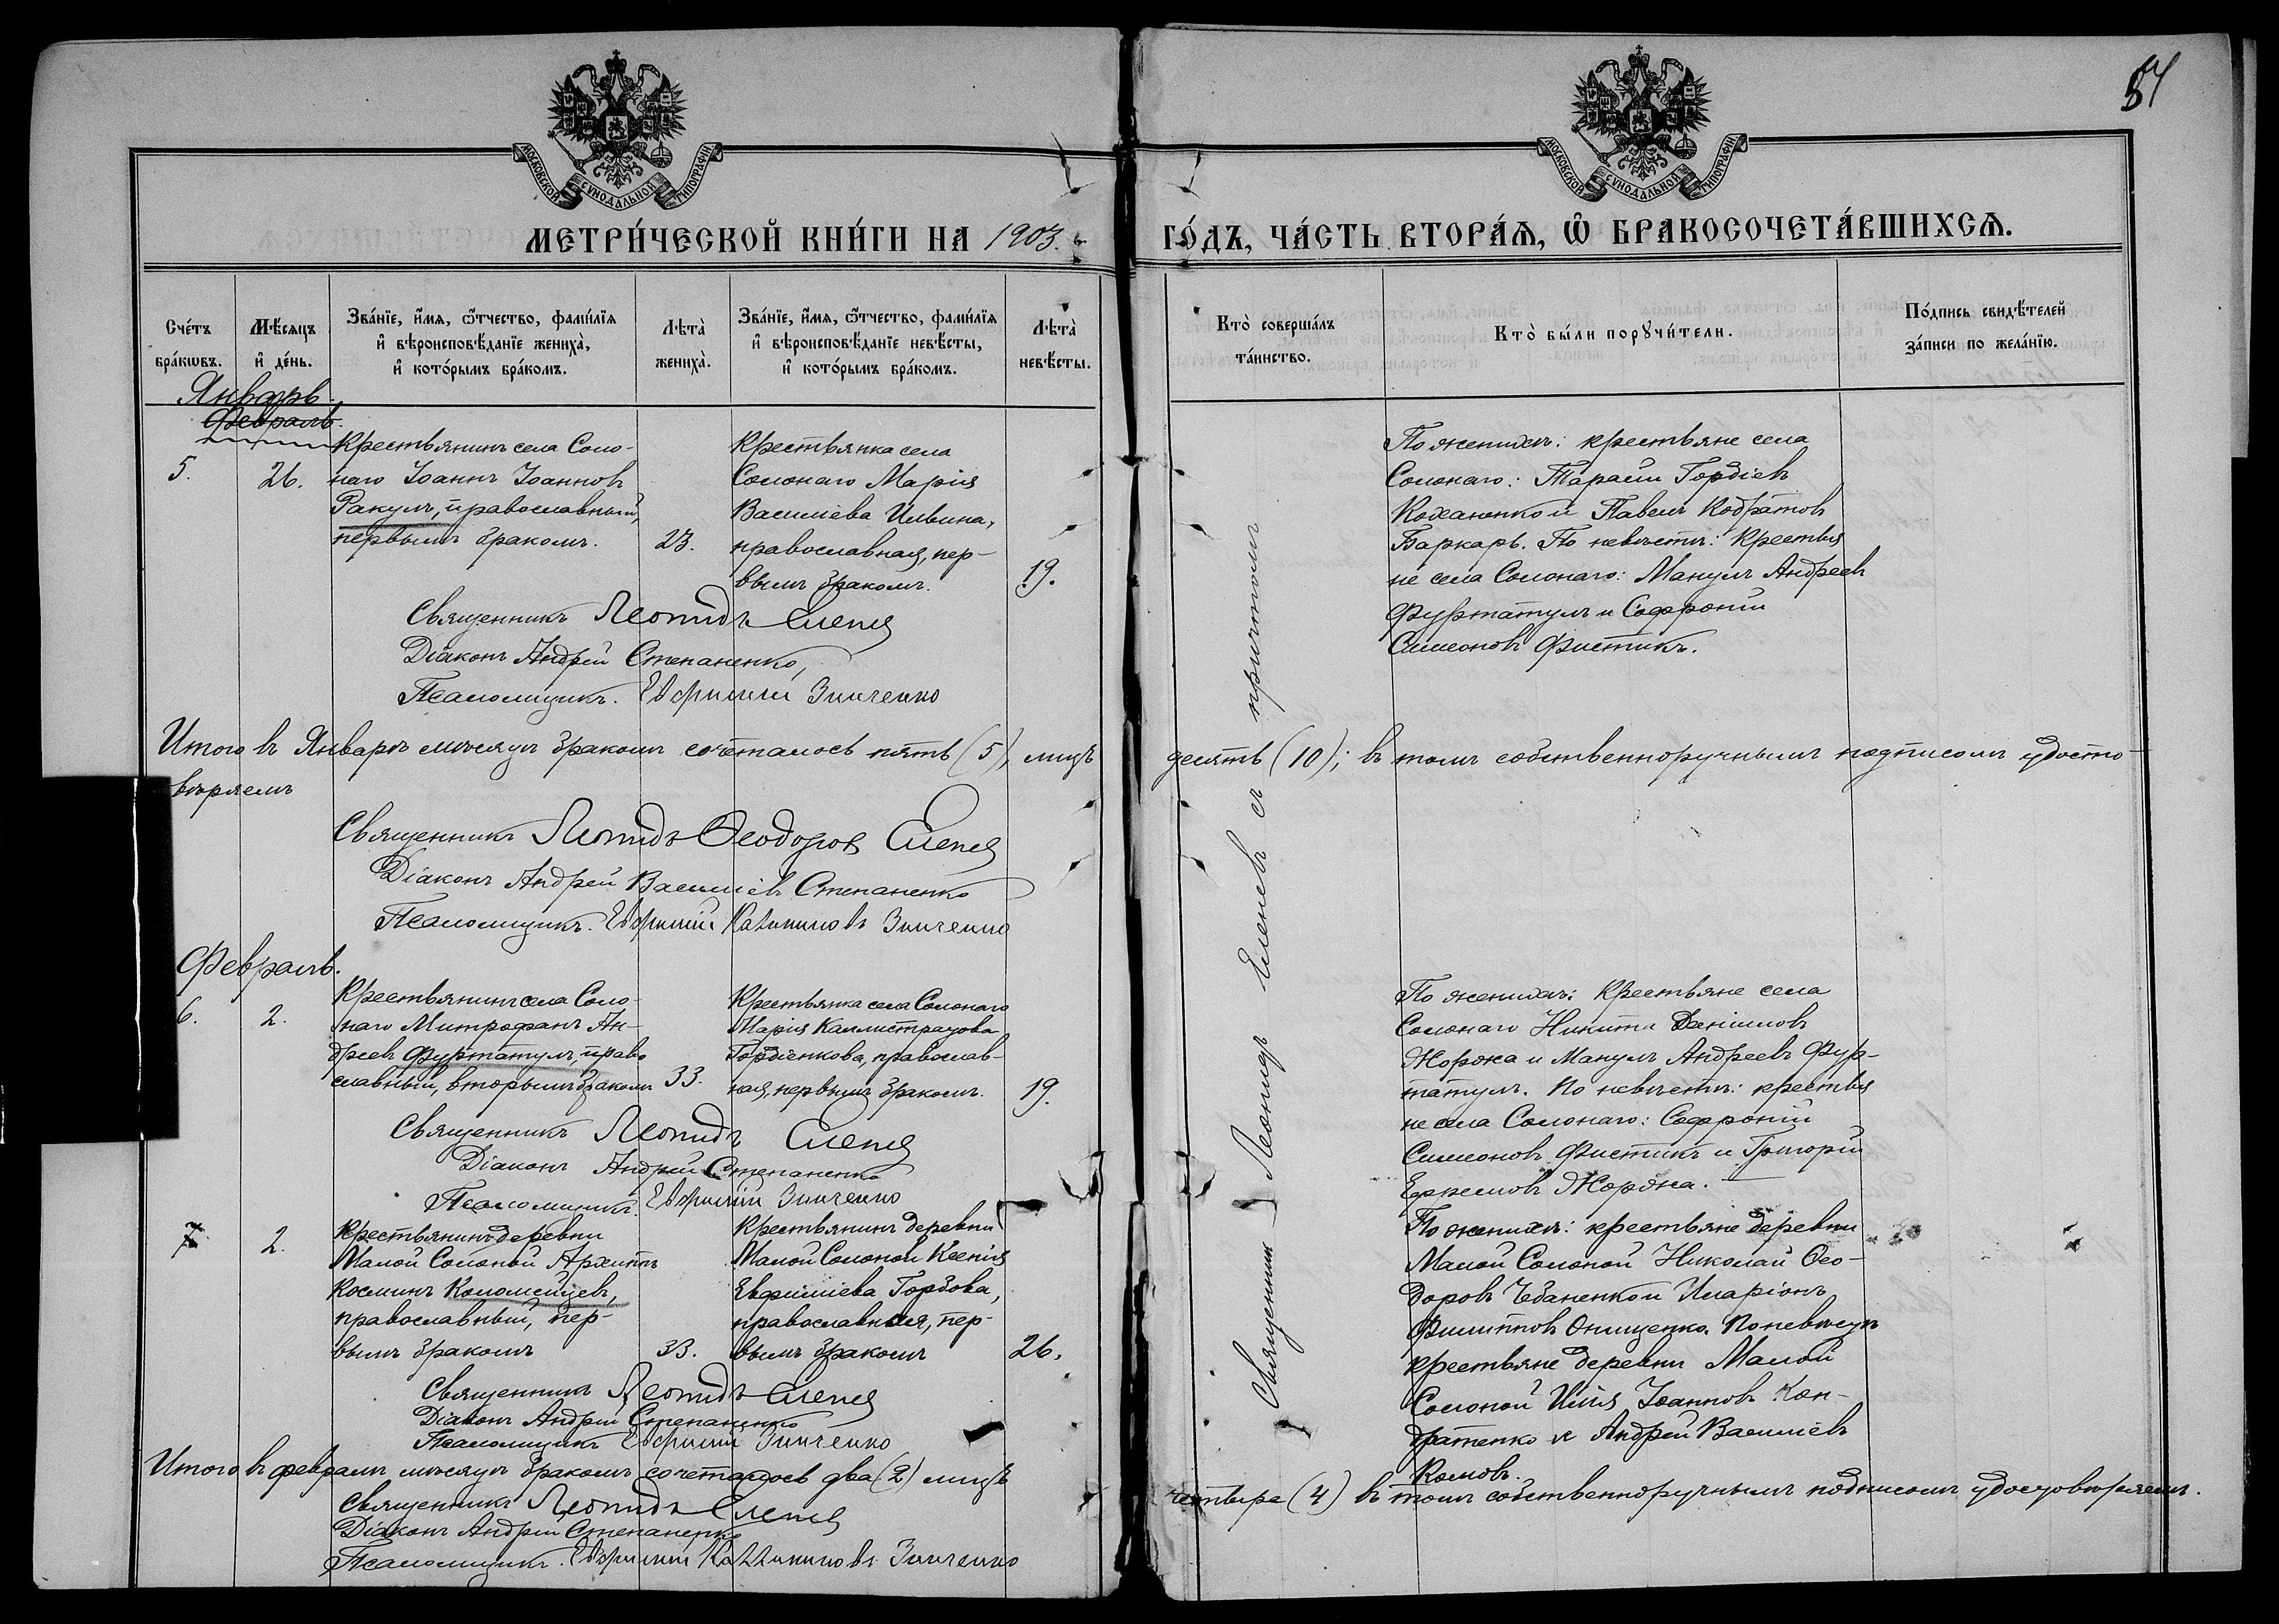 54
МОСКОВСКОЙ СѴНОДАЛЬНОЙ ТИПОГРАФІИ
МОСКОВСКОЙ СѴНОДАЛЬНОЙ ТИПОГРАФІИ
МЕТРИ́ЧЕСКОЙ КНИ́ГИ НА 1903.
ГО́ДЪ, ЧА́СТЬ ВТОРА́Ѧ, Ѽ БРАКОСОЧЕТА́ВШИХСѦ.
Сче́тъ бра́кѡвъ.
Мѣ́сяцъ и҆ де́нь.
Зва́нїе, и҆́мя, ѻ҆́тчество, фами́лїя и҆ вѣроисповѣ́данїе жениха̀, и҆ кото́рымъ бра́комъ.
Лѣта̀ жениха̀.
Зва́нїе, и҆́мя, ѻ҆́тчество, фами́лїя и҆ вѣроисповѣ́данїе невѣ́сты, и҆ кото́рымъ бра́комъ.
Лѣта̀ невѣ́сты.
Кто̀ соверша́лъ та́инство.
Кто̀ бы́ли порꙋчи́тели.
По́дпись свидѣ́телей за́писи по жела́нїю.
Январь.
Февраль.
5.
26.
Крестьянинъ села Соло-
наго Іоаннъ Іоанновъ
Ракулъ, православный,
первымъ бракомъ.
23.
Крестьянка села
Солонаго Марія
Василіева Ильина,
православная, пер-
вымъ бракомъ.
19.
По женихѣ: крестьяне села
Солонаго: Тарасій Гордіевъ
Коханенко и Павелъ Кодратовъ
Баркарь. По невѣстѣ: крестья
не села Солонаго: Мануилъ Андреевъ
Фуртатулъ и Софроній
Симеоновъ Фистикъ.
Священникъ Леонидъ Еленев
Діаконъ Андрей Степаненко,
Псаломщикъ. Евфимій Зинченко
Итого въ Январѣ мѣсяцѣ бракомъ сочеталось пять (5), лицъ
десять (10); въ томъ собственноручнымъ подписомъ удосто-
вѣряемъ
Священникъ Леонидъ Ѳеодоров Еленев
Діаконъ Андрей Василіевъ Степаненко
Псаломщикъ. Евфимій Каллиниковъ Зинченко
Февраль.
6.
2.
Крестьянинъ села Соло-
наго Митрофанъ Ан-
дреевъ Фуртатулъ, право
славный, вторымъ бракомъ
33.
Крестьянка села Солонаго
Марія Каллистратова
Гордіенкова, православ-
ная, первымъ бракомъ.
19.
По женихѣ: Крестьяне села
Солонаго Никита Даніиловъ
Жоржа и Мануилъ Андреевъ Фур-
татулъ. По невѣстѣ: крестья
не села Солонаго: Софроній
Симеоновъ Фистикъ и Григорій
Ефремовъ Жоржа.
Священникъ Леонидъ Еленев
Діаконъ Андрей Степаненко
Псаломщикъ. Евфимій Зинченко
7.
2.
Крестьянинъ деревни
Малой Солоной Архиппъ
Косминъ Коломейцевъ,
православный, пер-
вымъ бракомъ
33.
Крестьянинъ деревни
Малой Солоной Ксенія
Евфиміева Горбова,
православная, пер-
вымъ бракомъ
26.
По женихѣ: крестьяне деревни
Малой Солоной Николай Ѳео-
доровъ Чебаненко и Иларіонъ
Филипповъ Онищенко. По невѣстѣ
крестьяне деревни Малой
Солоной Илія Іоанновъ Кон-
дратенко и Андрей Василіевъ
Комовъ.
Священникъ Леонидъ Еленев
Діаконъ Андрей Степаненко
Псаломщикъ Евфимій Зинченко
Итого въ февралѣ мѣсяцѣ бракомъ сочеталось два (2) лицъ
четыре (4) въ томъ собственноручнымъ подписомъ удостовѣряемъ.
Священникъ Леонидъ Еленев
Діаконъ Андрей Степаненко
Псаломщикъ. Евфимій Каллиниковъ Зинченко
Священник Леонидъ Еленевъ съ причтомъ